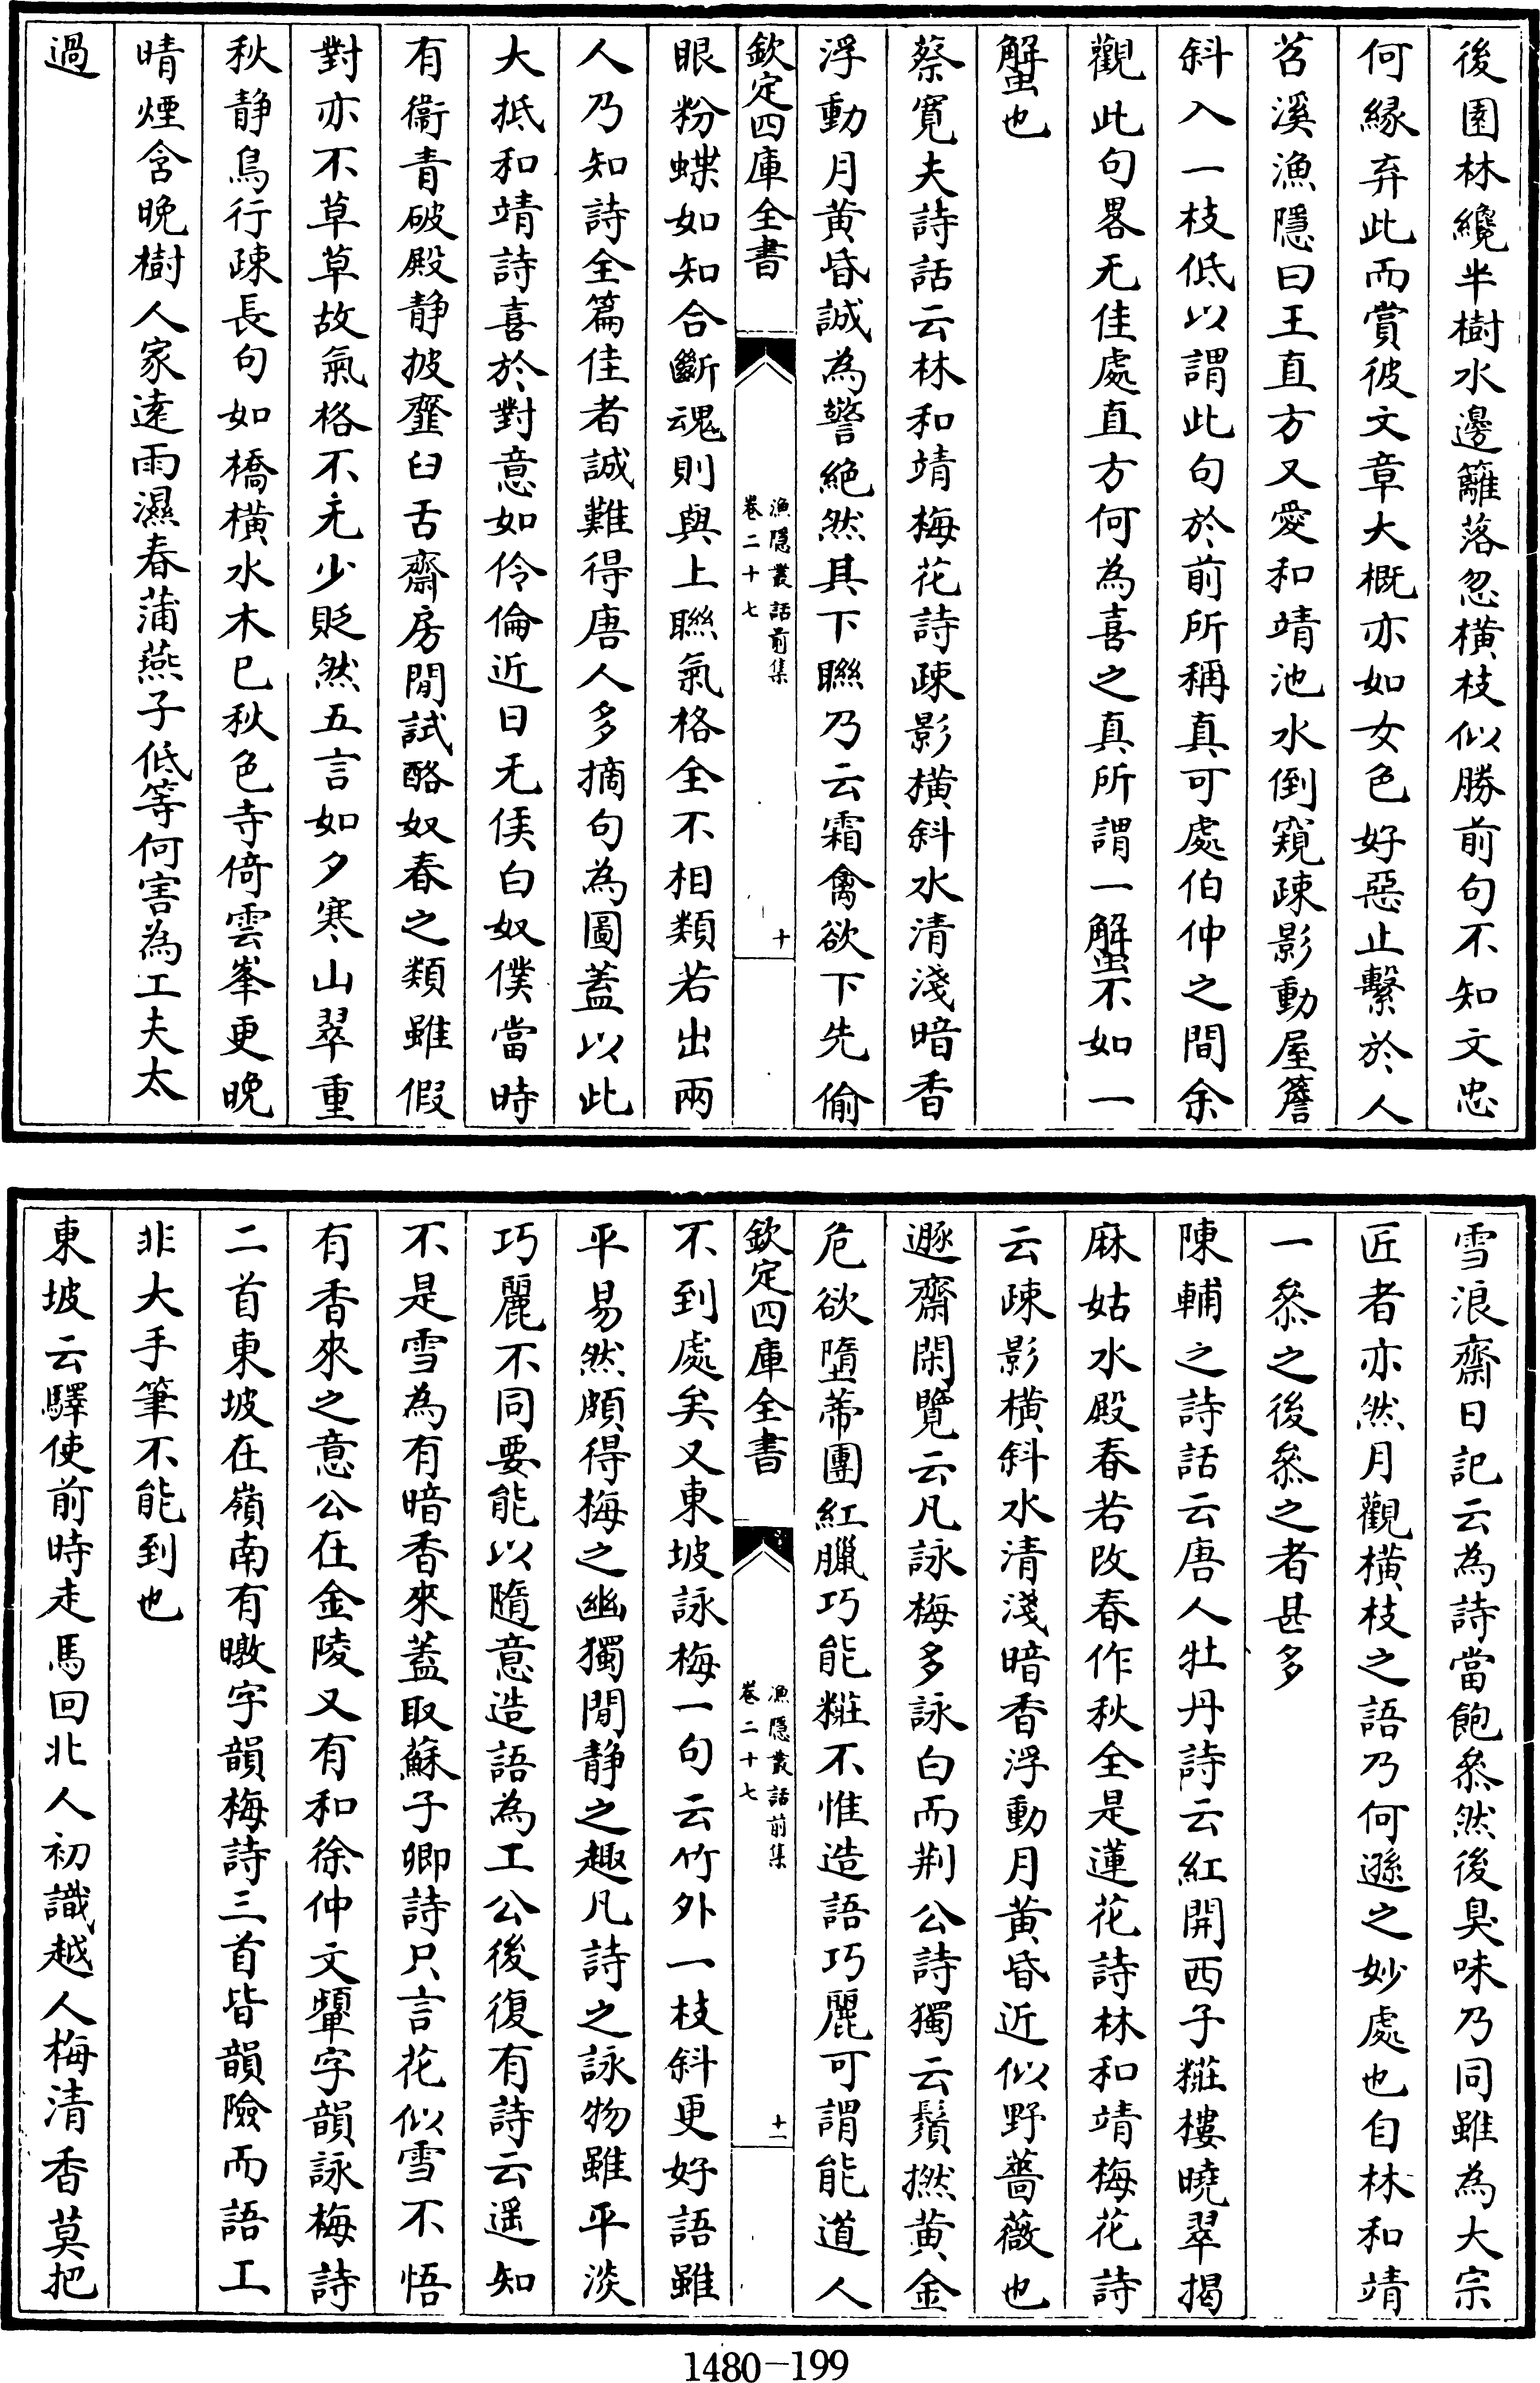 後園林纔半樹水邊籬落忽橫枝似勝前句不知文忠
何縁弃此而賞彼文章大概亦如女色好惡止繫於人
苕溪漁隱曰王直方又愛和靖池水倒窺疎影動屋簷
斜入一枝低以謂此句於前所稱真可處伯仲之間余
觀此句畧无佳處直方何為喜之真所謂一蟹不如一
蟹也
蔡寛夫詩話云林和靖梅花詩疎影橫斜水清淺暗香
浮動月黄昏誠為警絶然其下聯乃云霜禽欲下先偷
欽定四庫全書
漁隱叢話前集
卷二十七
十
眼粉蝶如知合斷魂則與上聯氣格全不相類若出兩
人乃知詩全篇佳者誠難得唐人多摘句為圖蓋以此
大抵和靖詩喜於對意如伶倫近日无侯白奴僕當時
有衞青破殿静披虀臼舌齋房閒試酪奴春之類雖假
對亦不草草故氣格不无少貶然五言如夕寒山翠重
秋静鳥行疎長句如橋橫水木已秋色寺倚雲峯更晚
晴煙含晚樹人家逺雨濕春蒲燕子低等何害為工夫太
過
雪浪齋日記云為詩當飽叅然後臭味乃同雖為大宗
匠者亦然月觀橫枝之語乃何遜之妙處也自林和靖
一叅之後叅之者甚多
陳輔之詩話云唐人牡丹詩云紅開西子糚樓曉翠揭
麻姑水殿春若改春作秋全是蓮花詩林和靖梅花詩
云疎影橫斜水清淺暗香浮動月黄昏近似野薔薇也
遯齋閑覽云凡詠梅多詠白而荆公詩獨云鬚撚黄金
危欲墮蔕團紅臘巧能糚不惟造語巧麗可謂能道人
欽定四庫全書
漁隱叢話前集
卷二十七
十一
不到處矣又東坡詠梅一句云竹外一枝斜更好語雖
平易然頗得梅之幽獨閒静之趣凡詩之詠物雖平淡
巧麗不同要能以隨意造語為工公後復有詩云遥知
不是雪為有暗香來蓋取蘇子卿詩只言花似雪不悟
有香來之意公在金陵又有和徐仲文顰字韻詠梅詩
二首東坡在嶺南有暾字韻梅詩三首皆韻險而語工
非大手筆不能到也
東坡云驛使前時走馬回北人初識越人梅清香莫把
1480-199